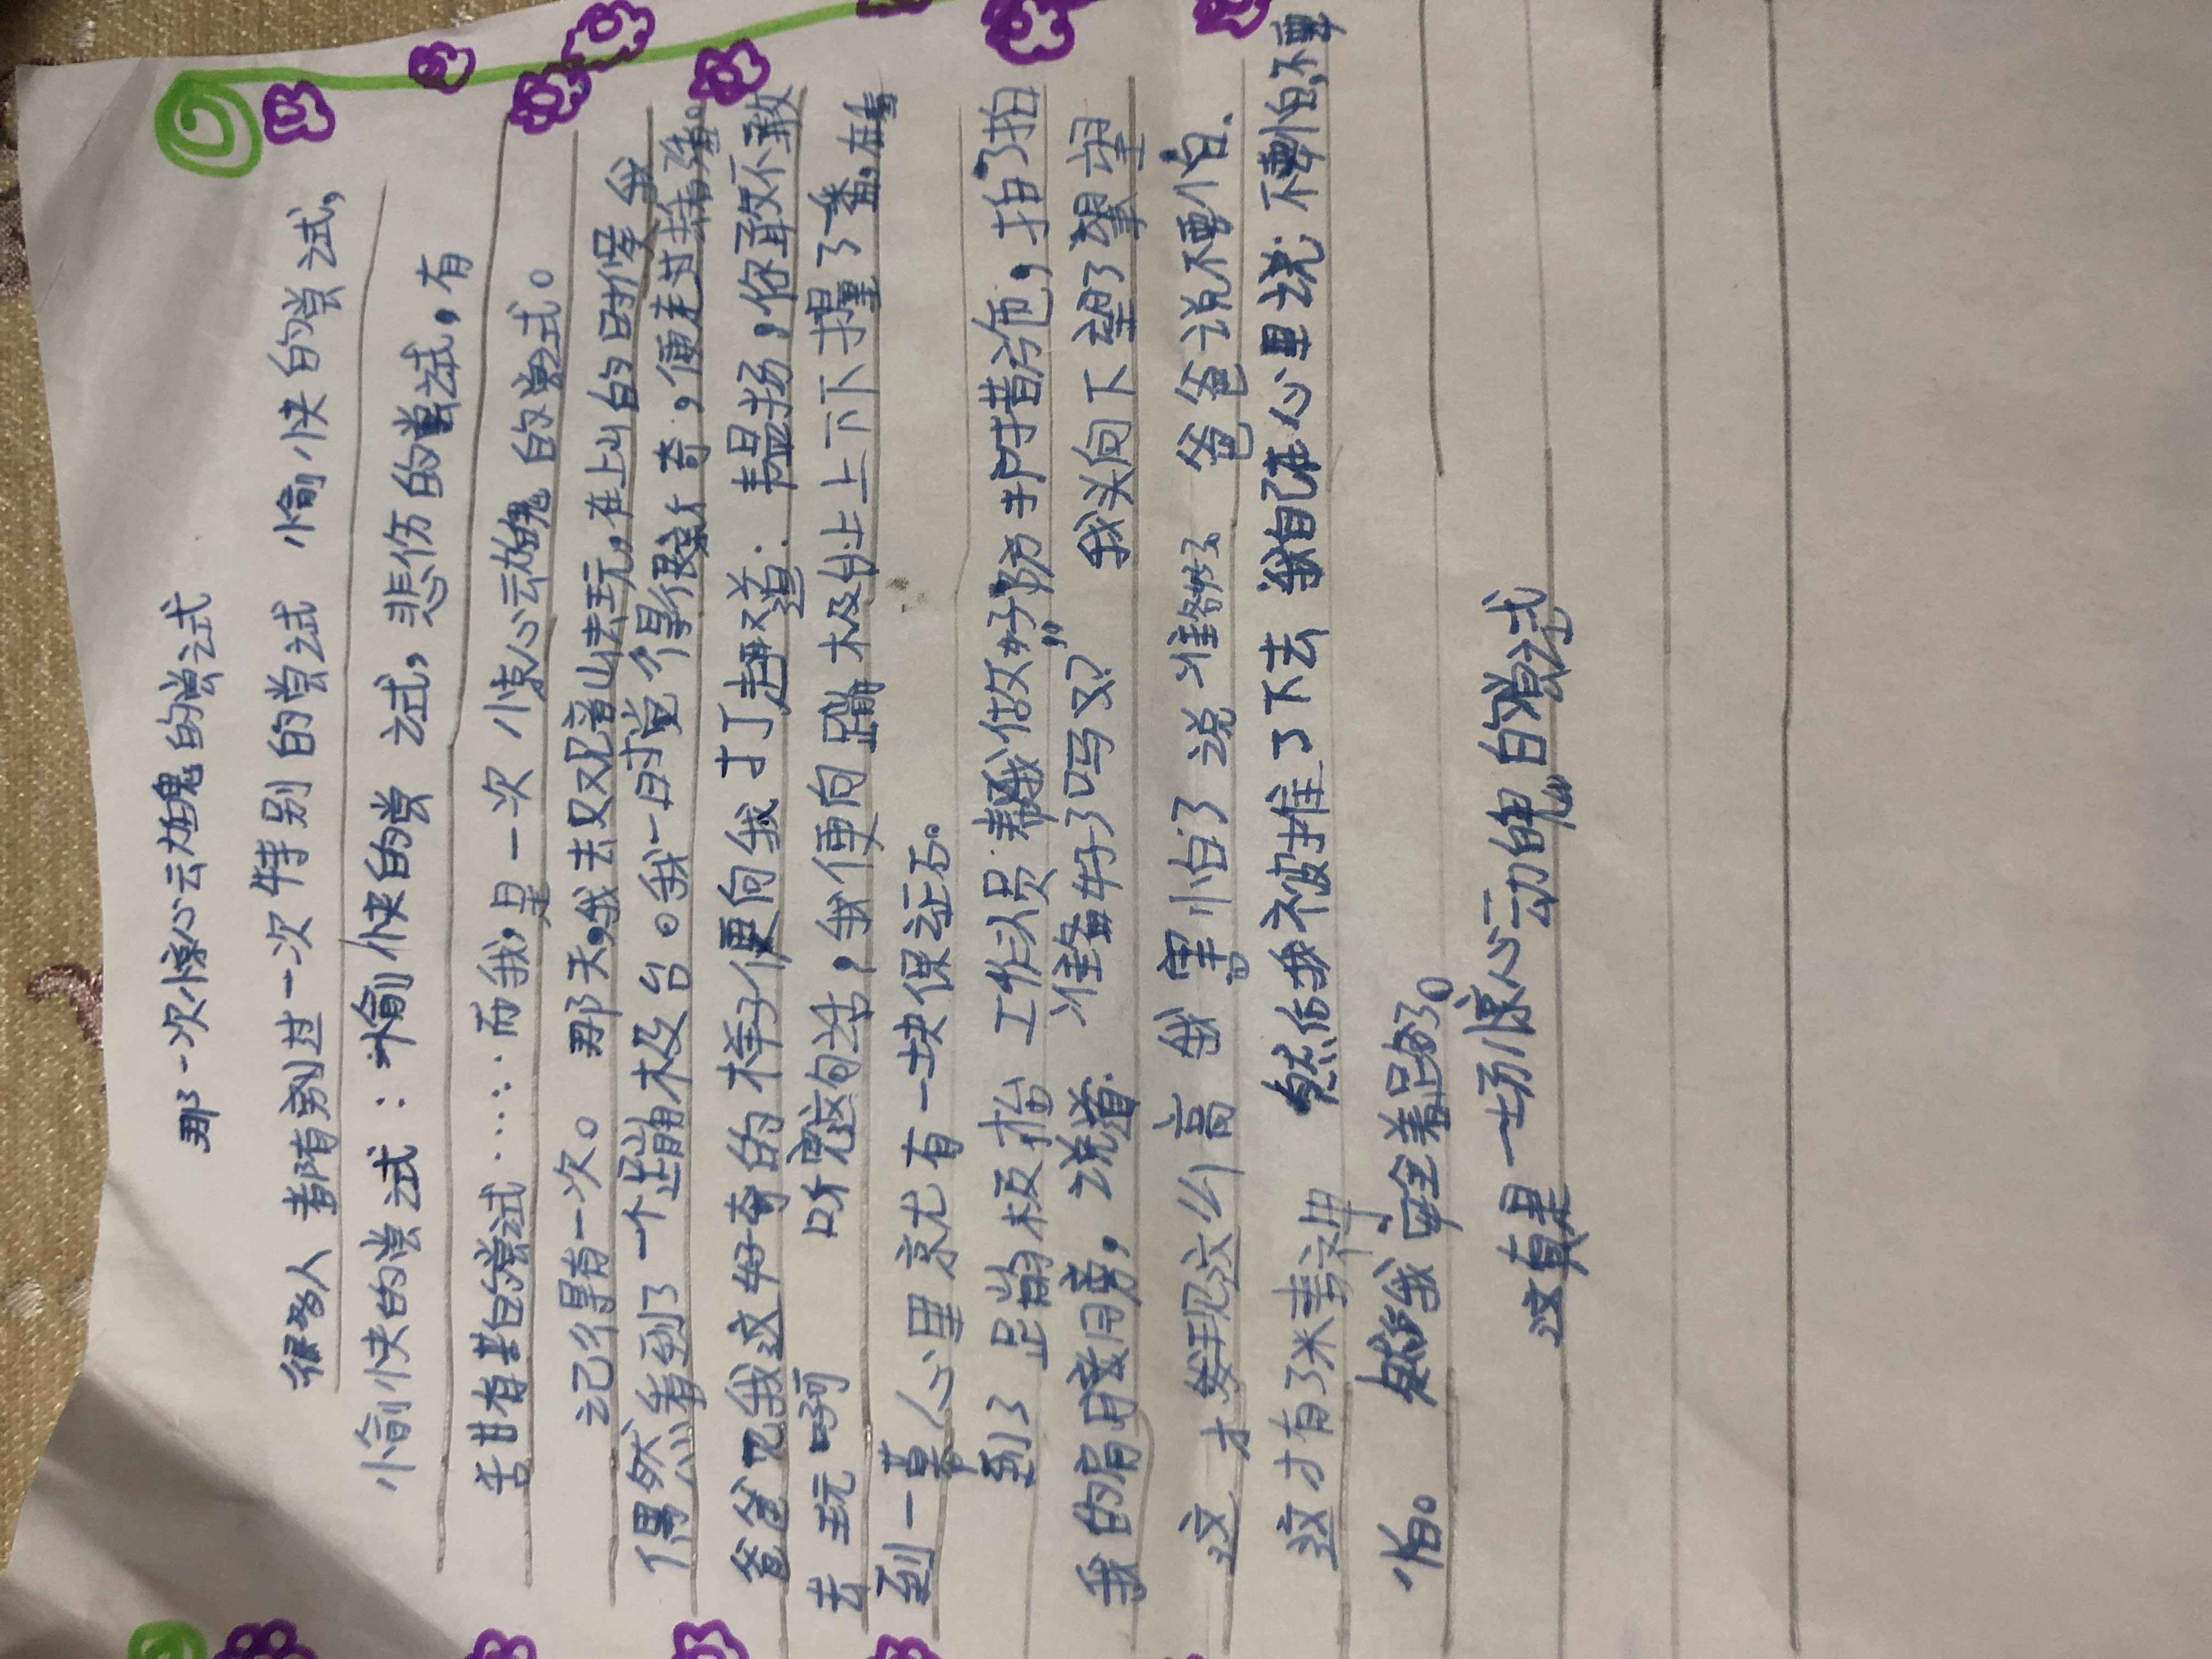 那一次惊心动魄的尝试
很多人都有别过一次特别的尝试 愉快的尝试,
愉快的尝试:愉快的尝试,悲伤的尝试,有
苦甘有甚的尝试……而我,是一次惊心动魄的尝式。
记得有一次。那天,我去又兄音山去玩,在上山的时候 我
偶然看到了一个蹦极台。我一时觉得很好奇,便走过去
爸爸见我这好奇的样子便向我打趣道:韩晨扬,你敢不敢
去玩啊 听完这句话,我便向蹦极台上上下下打量了番,在看
到一幕心里就尤有一块保证石。
到了蹦极抬 工作人员帮我做好防护措施,拍了拍
我的肩膀旁,说道:准备好了吗?” 我头向下望了望
这才发现这么高 我害怕了 说准备好了 爸爸说不要怕.
这才有了 然后我被推了下去 我自己在心里说:不要怕,不要
怕。 然后我安全着陆了。
这真是一场“惊心动魄”的尝试